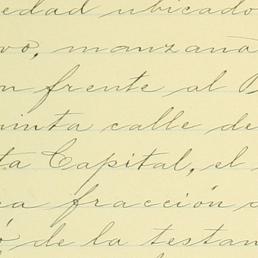 edad ubicado
vo, manzana
n frente al
uinta calle de
ta Capital, el
a fracción
ó de la testan